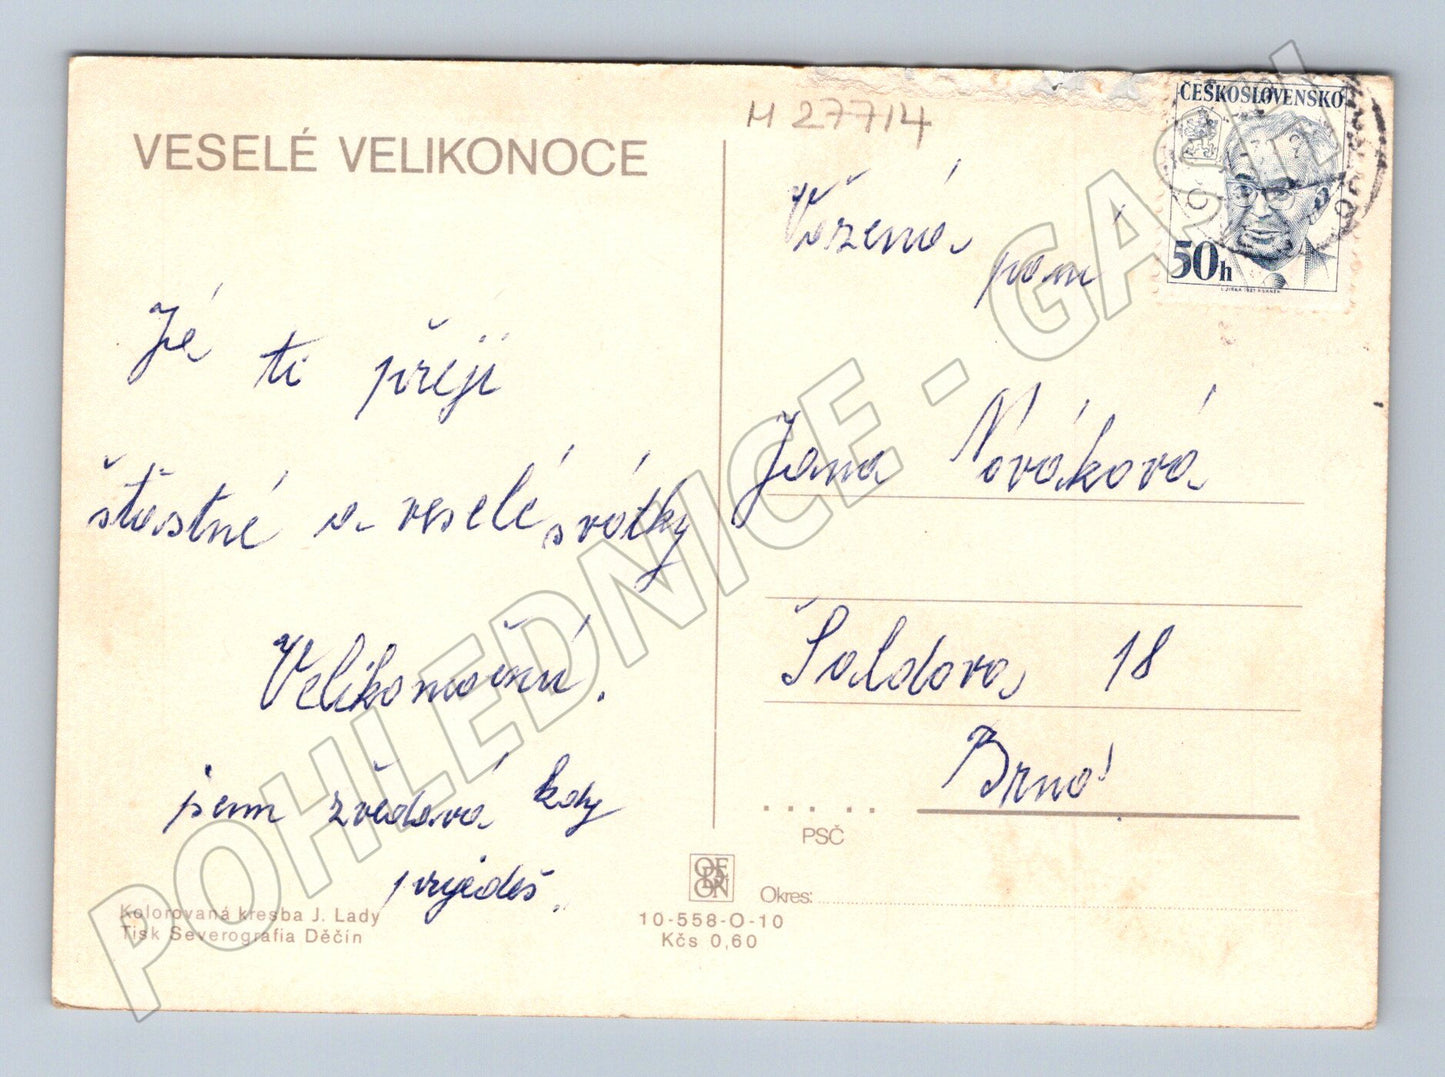 VESELÉ VELIKONOCE
M 27714
ČESKOSLOVENSKO
50h
Vážená
paní
Já ti přeji
štastné a veselé svátky
Velikonoční.
jsem zvědavá kdy
přijedeš.
Jana Nováková
Šaldova 18
Brno
PSČ
Okres:
Kolorovaná kresba J. Lady
Tisk Severografia Děčín
ORBIS
10-558-O-10
Kčs 0,60
POHLEDNICE - GASCH